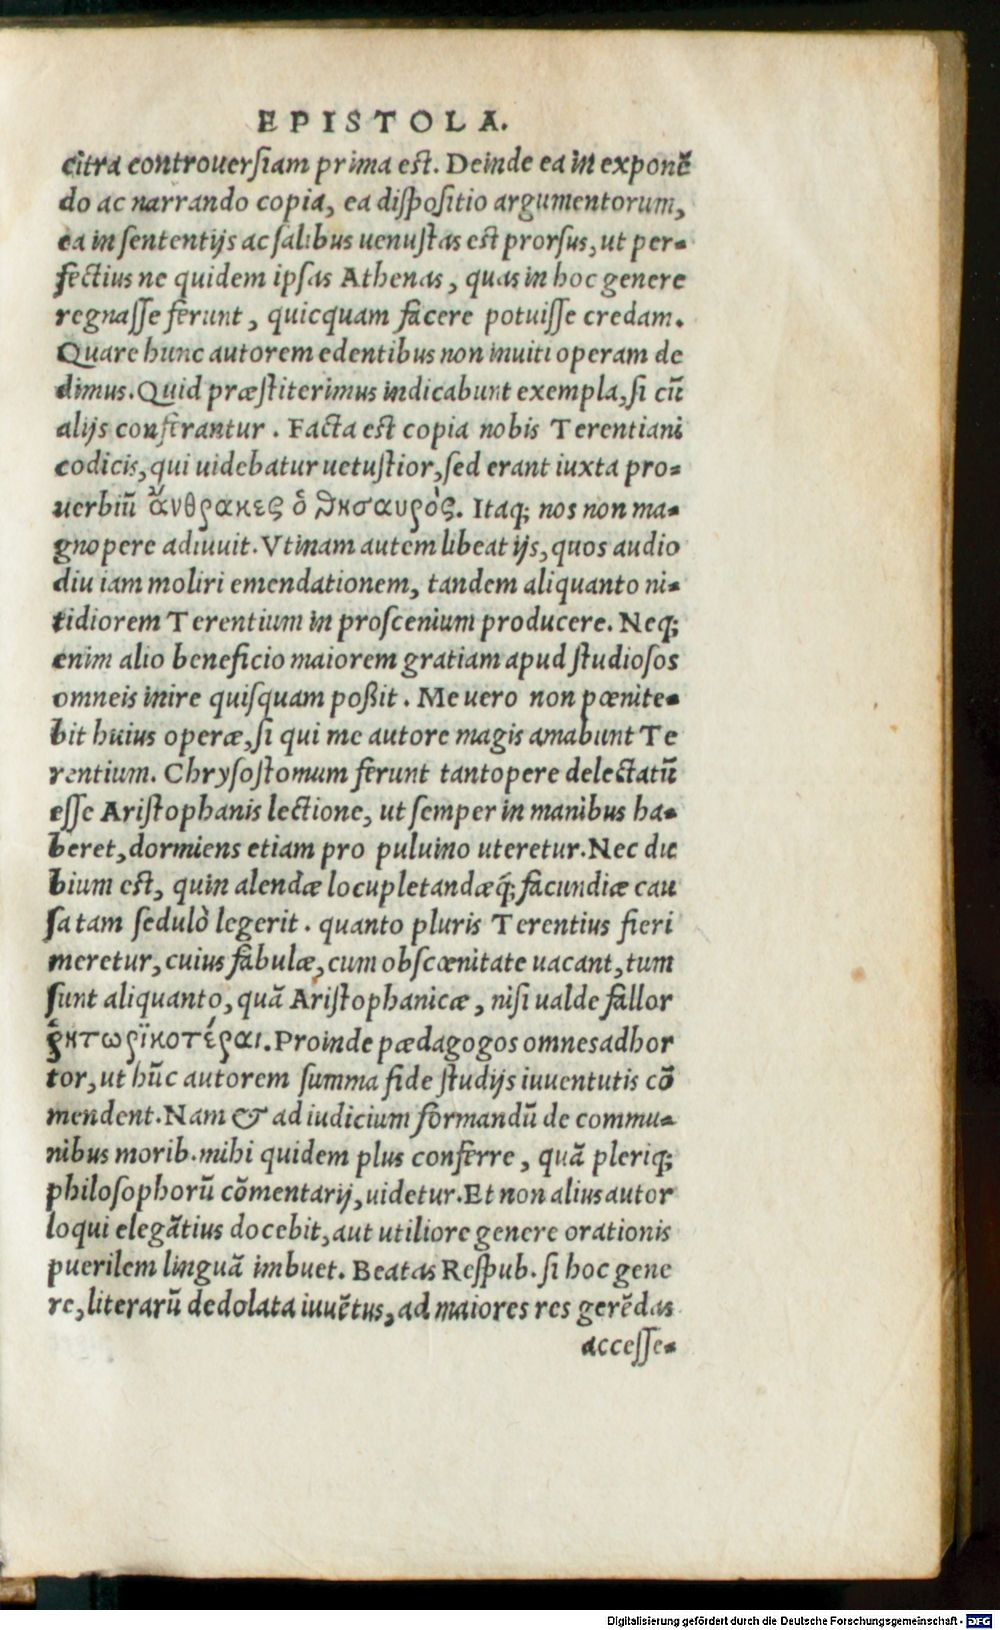 EPISTOLA.
citra controuersiam prima est. Deinde ea in exponẽ
do ac narrando copia, ea dispositio argumentorum,
ea in sententijs ac salibus uenustas est prorsus, ut per-
fectius ne quidem ipsas Athenas, quas in hoc genere
regnasse ferunt, quicquam facere potuisse credam.
Quare hunc autorem edentibus non inuiti operam de
dimus. Quid præstiterimus indicabunt exempla, si cũ
alijs conferantur. Facta est copia nobis Terentiani
codicis, qui uidebatur uetustior, sed erant iuxta pro-
uerbiũ ἄνθρακες ὁ θησαυρὸς. Itaq; nos non ma-
gnopere adiuuit. Vtinam autem libeat ijs, quos audio
diu iam moliri emendationem, tandem aliquanto ni-
tidiorem Terentium in proscenium producere. Neq;
enim alio beneficio maiorem gratiam apud studiosos
omneis inire quisquam poßit. Me uero non pœnite-
bit huius operæ, si qui me autore magis amabunt Te
rentium. Chrysostomum ferunt tantopere delectatũ
esse Aristophanis lectione, ut semper in manibus ha-
beret, dormiens etiam pro puluino uteretur. Nec du
bium est, quin alendæ locupletandæq́; facundiæ cau
sa tam sedulò legerit. quanto pluris Terentius fieri
meretur, cuius fabulæ, cum obscœnitate uacant, tum
sunt aliquanto, quã Aristophanicæ, nisi ualde fallor
ῥητωρϊκοτέραι. Proinde pædagogos omnes adhor
tor, ut hũc autorem summa fide studijs iuuentutis cõ
mendent. Nam & ad iudicium formandũ de commu-
nibus morib. mihi quidem plus conferre, quã pleriq;
philosophorũ cõmentarij, uidetur. Et non alius autor
loqui elegãtius docebit, aut utiliore genere orationis
puerilem linguã imbuet. Beatas Respub. si hoc gene
re, literarũ dedolata iuuẽtus, ad maiores res gerẽdas
accesse-
Digitalisierung gefördert durch die Deutsche Forschungsgemeinschaft - DFG